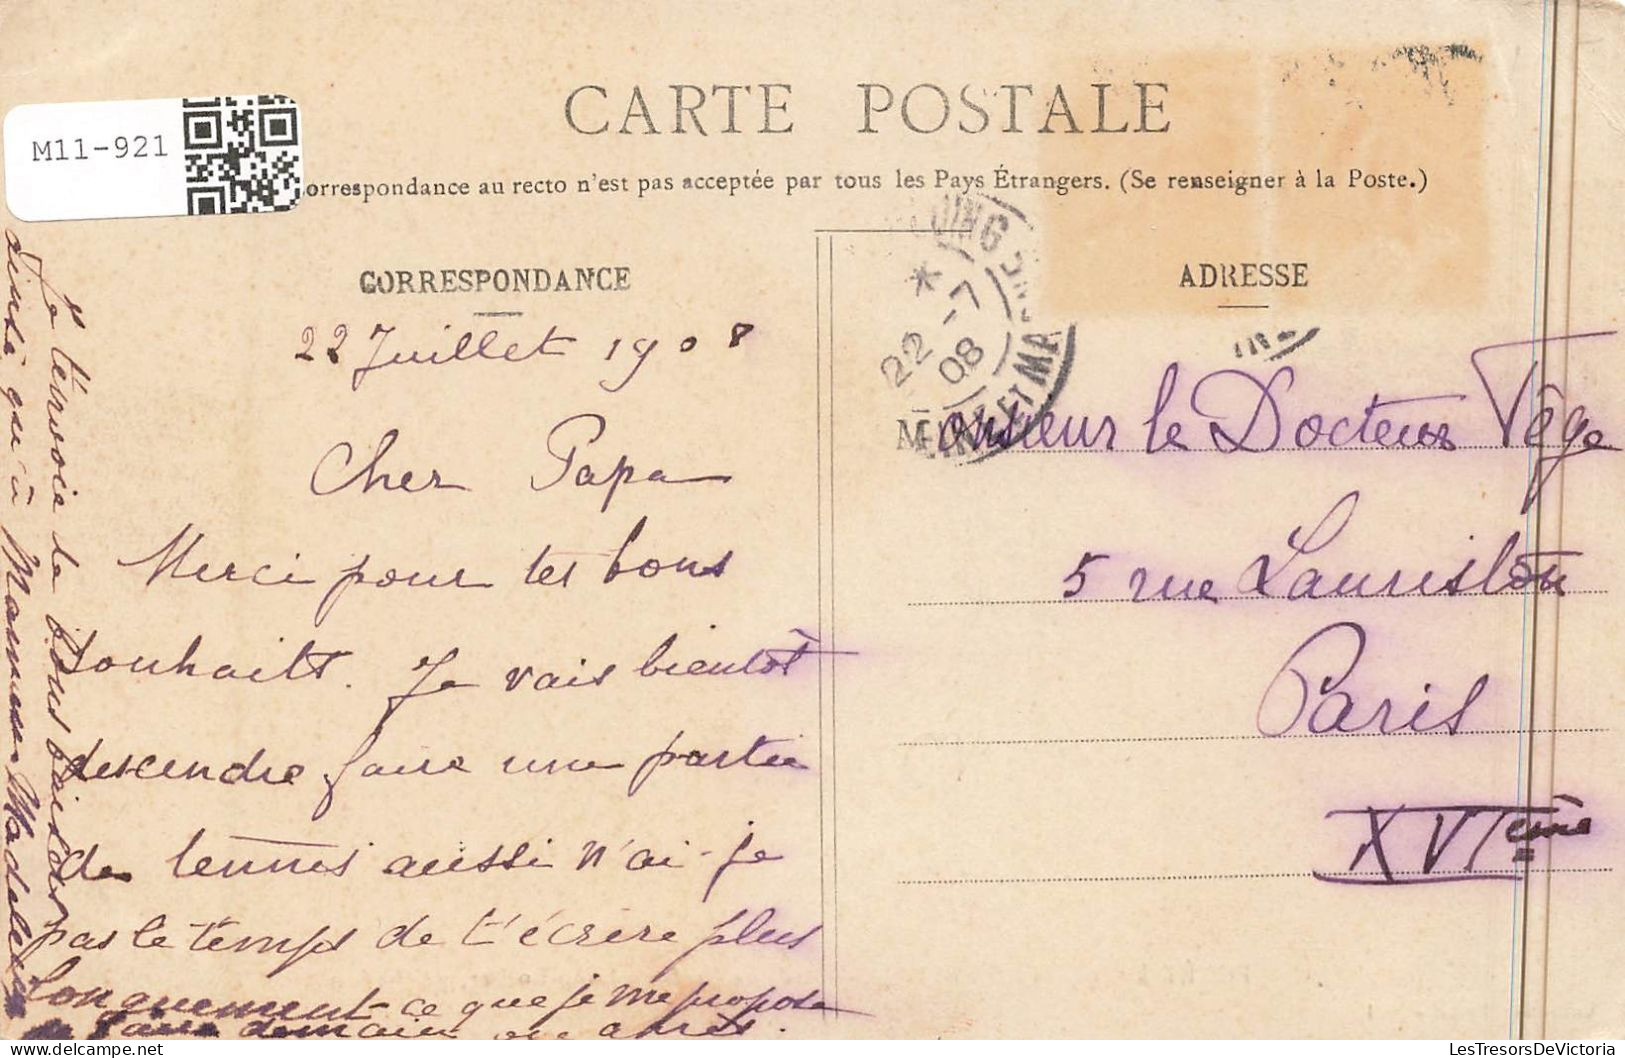 CARTE POSTALE
M11-921
orrespondance au recto n'est pas acceptée par tous les Pays Étrangers. (Se renseigner à la Poste.)
CORRESPONDANCE
22 Juillet 1908
Cher Papa
Merci pour tes bons
souhaits. Je vais bientôt
descendre faire une partie
de tennis aussi n'ai-je
pas le temps de t'écrire plus
longuement ce que je me propose
de faire demain ou après.
Je t'envoie de bons baisers
ainsi qu'à Maman Madeleine
22 -7
08
ET MA
ADRESSE
Monsieur le Docteur Vège
5 rue Lauriston
Paris
XVIème
LesTresorsDeVictoria